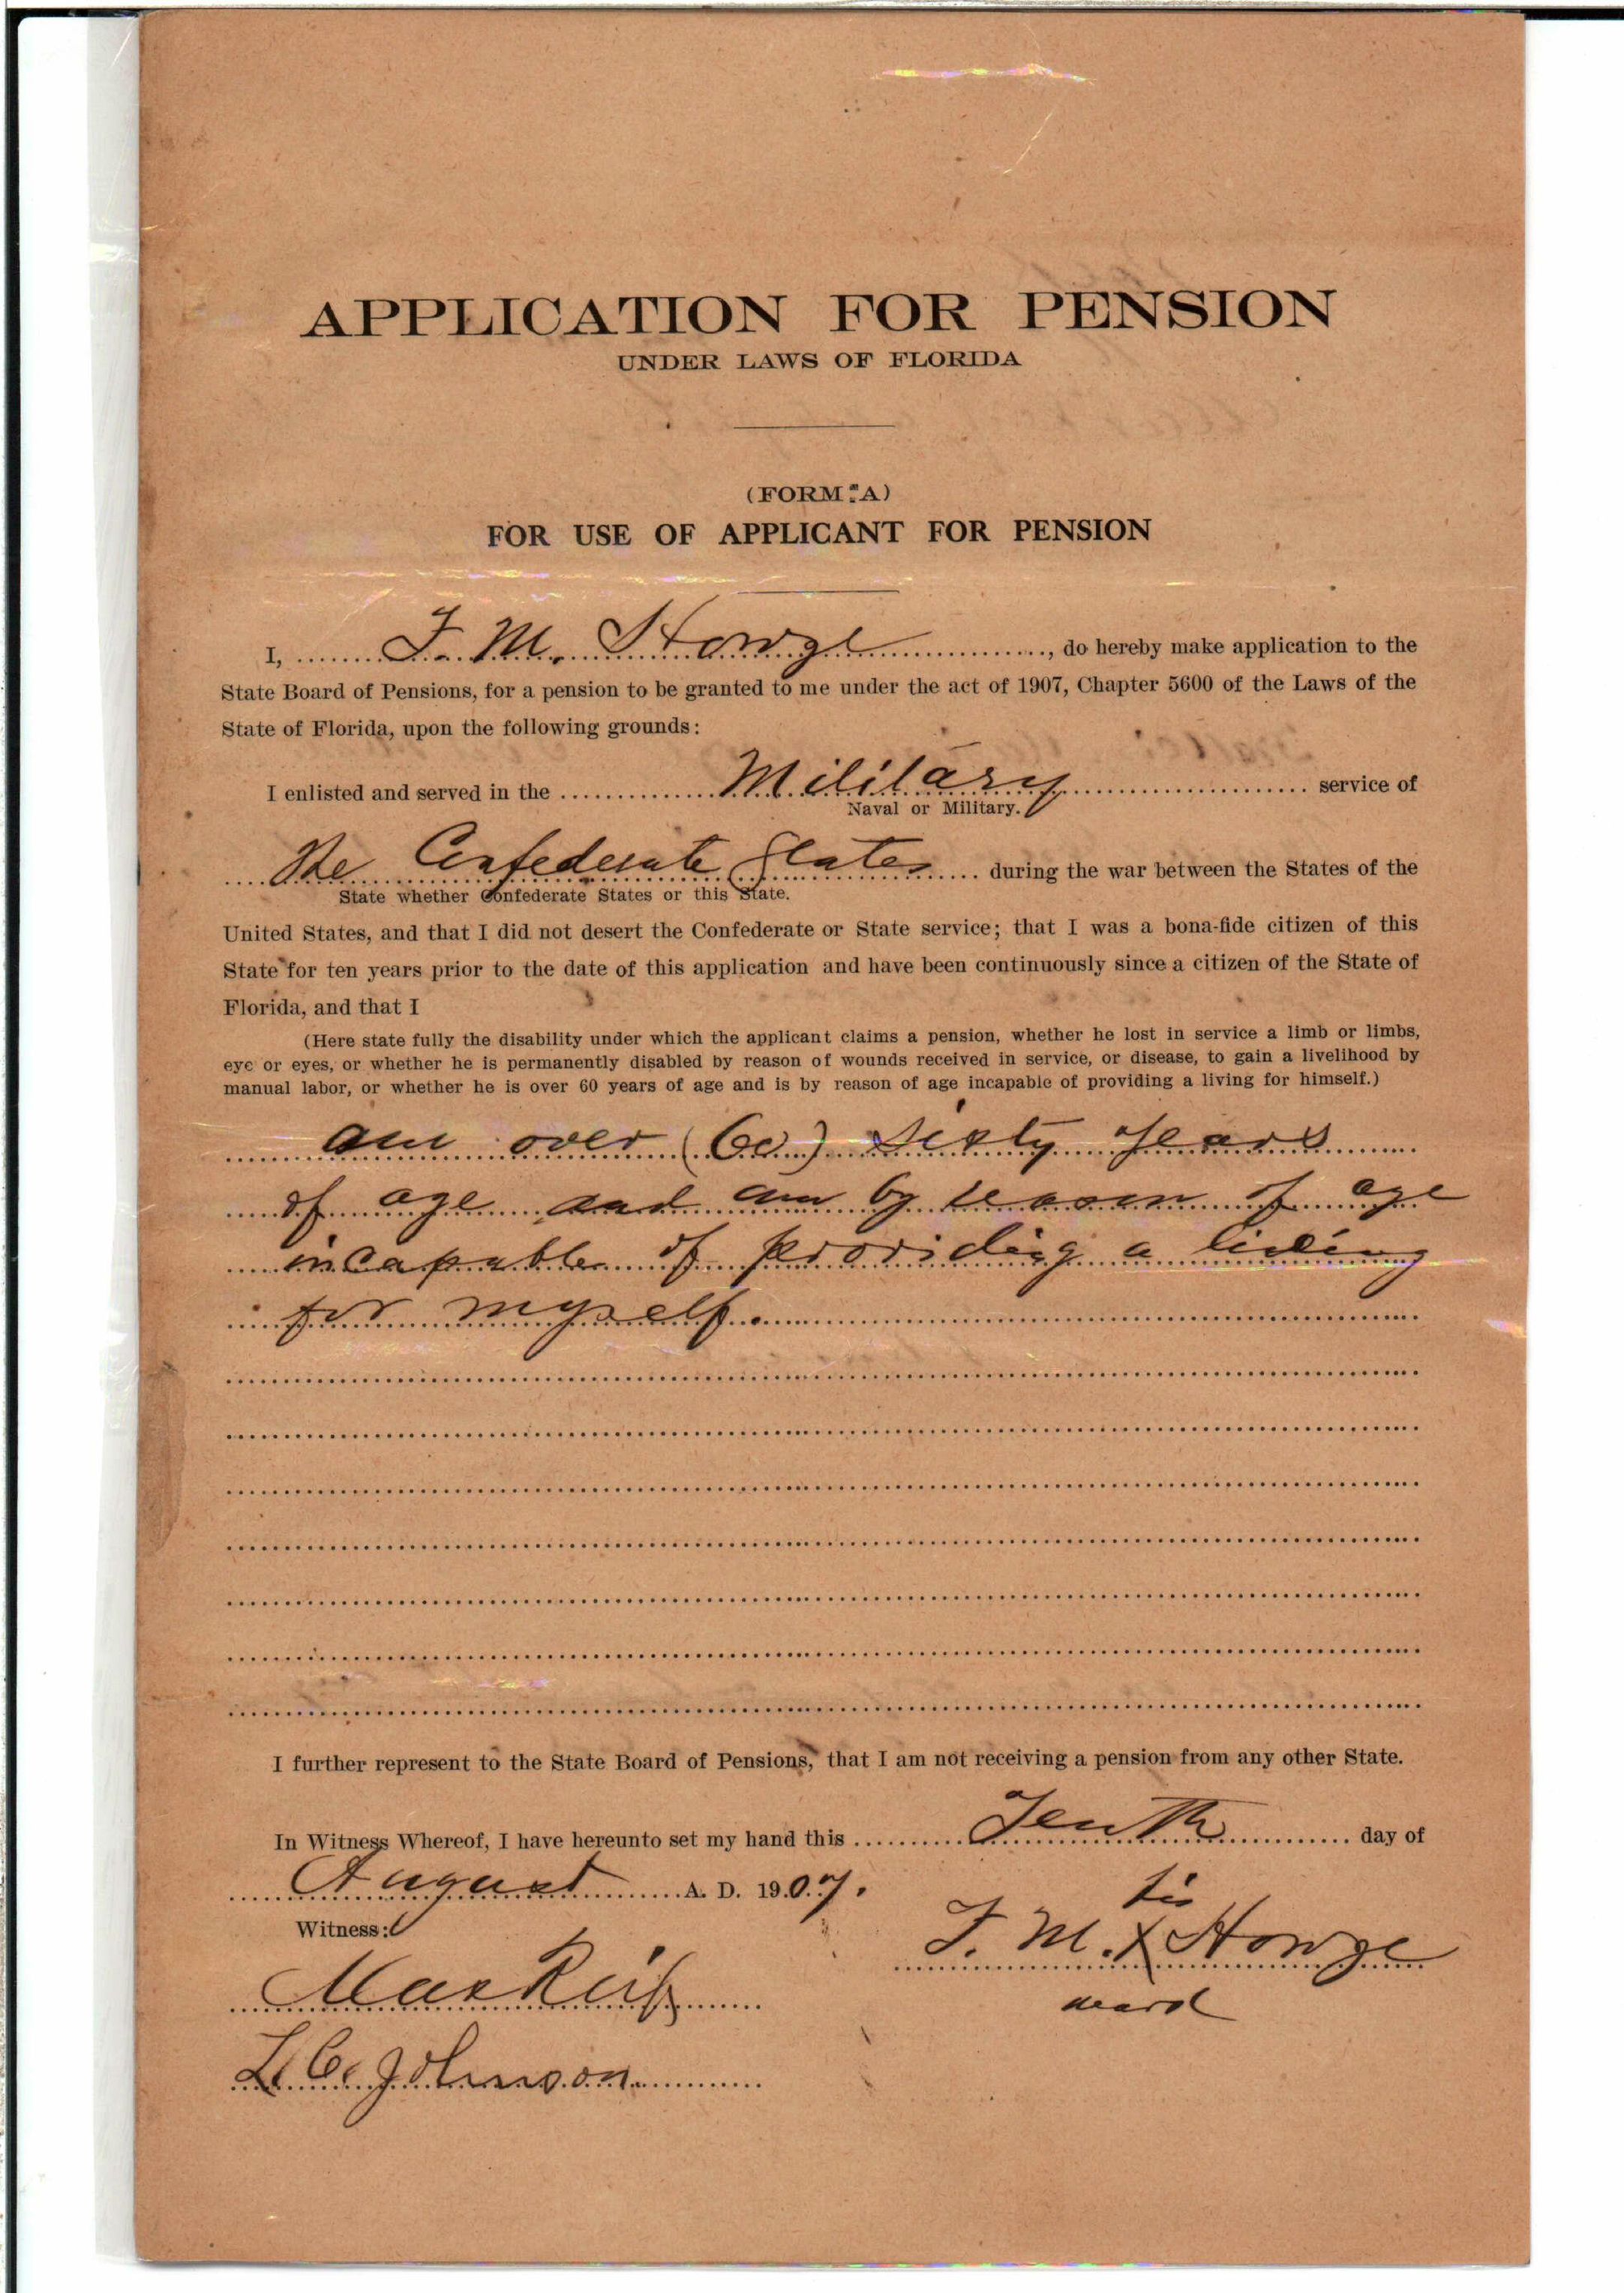 APPLICATION FOR PENSION
UNDER LAWS OF FLORIDA
(FORM A)
FOR USE OF APPLICANT FOR PENSION
I, F. M. Howze, do hereby make application to the
State Board of Pensions, for a pension to be granted to me under the act of 1907, Chapter 5600 of the Laws of the
State of Florida, upon the following grounds:
I enlisted and served in the Military service of
Naval or Military.
the Confederate States during the war between the States of the
State whether Confederate States or this State.
United States, and that I did not desert the Confederate or State service; that I was a bona-fide citizen of this
State for ten years prior to the date of this application and have been continuously since a citizen of the State of
Florida, and that I
(Here state fully the disability under which the applicant claims a pension, whether he lost in service a limb or limbs,
eye or eyes, or whether he is permanently disabled by reason of wounds received in service, or disease, to gain a livelihood by
manual labor, or whether he is over 60 years of age and is by reason of age incapable of providing a living for himself.)
am over (60) sixty years
of age and am by reason of age
incapable of providing a living
for myself.
I further represent to the State Board of Pensions, that I am not receiving a pension from any other State.
In Witness Whereof, I have hereunto set my hand this Tenth day of
August A. D. 1907.
his
Witness:
F. M. X Howze
mark
Max
L. C. Johnson